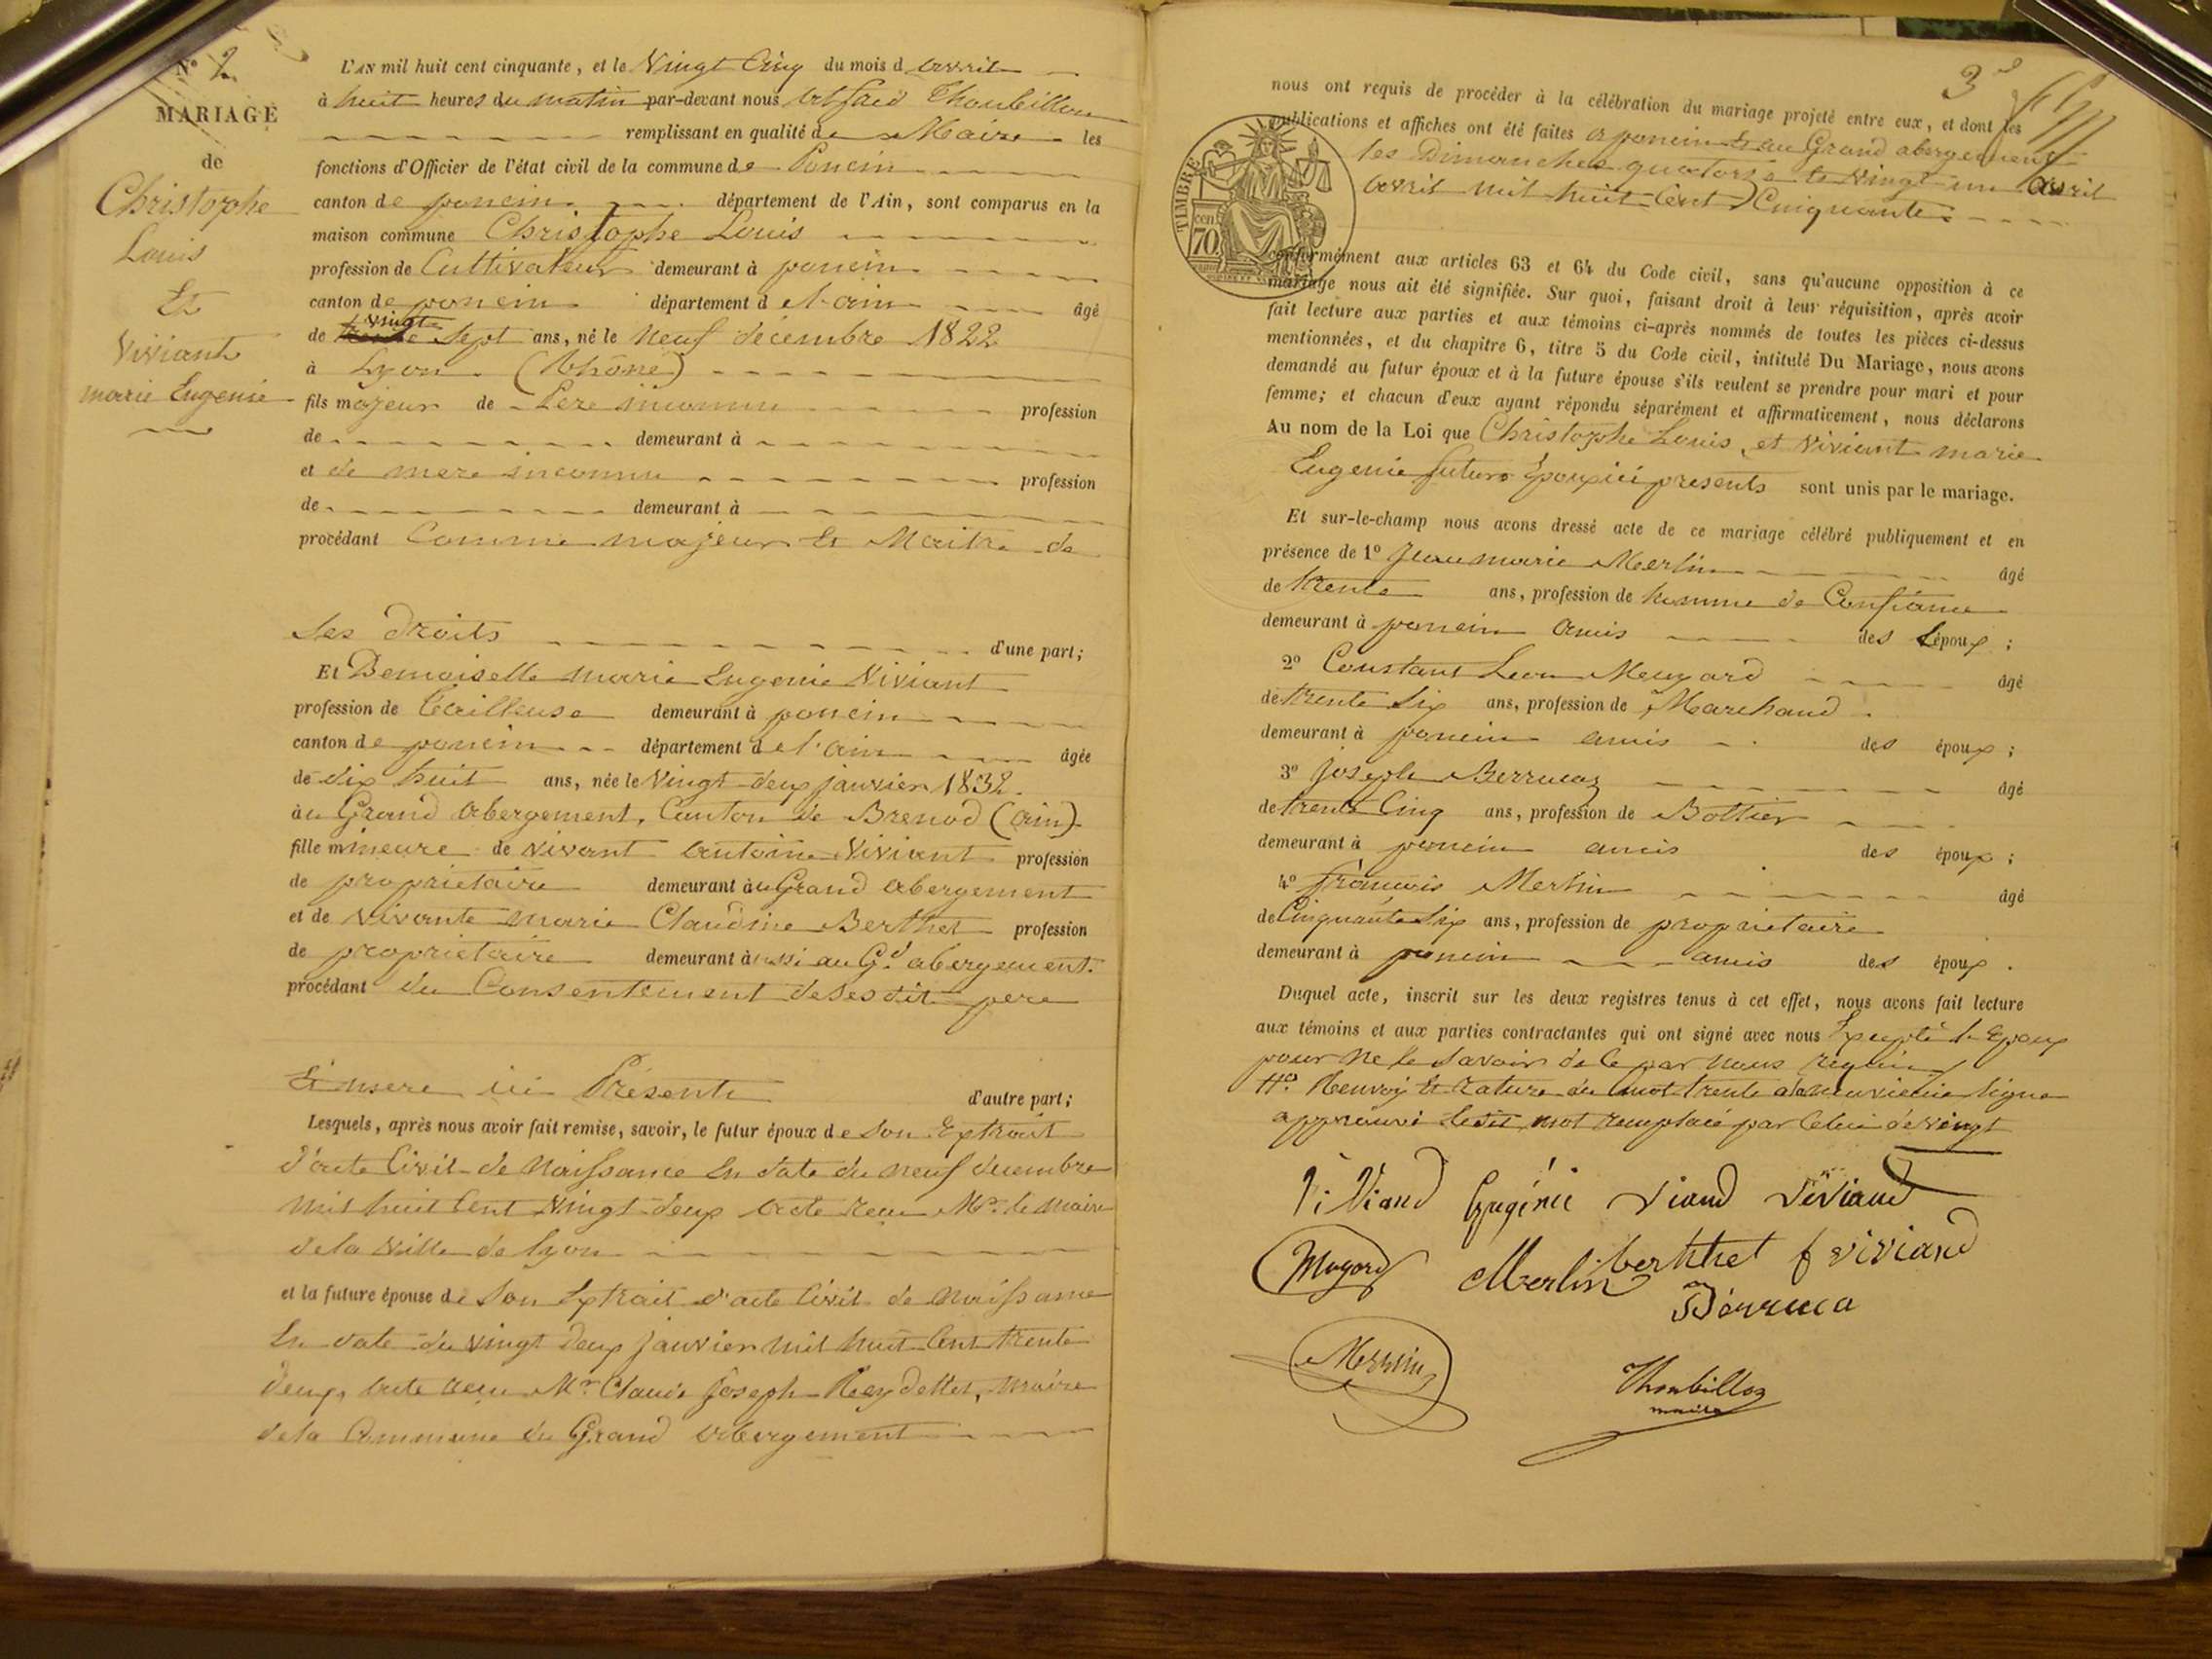 N° 2
MARIAGE
de
Christophe
Louis
Et
Viviant
marie Eugenie
L'AN mil huit cent cinquante, et le Vingt Cinq du mois d avril
à huit heures du matin par-devant nous Thoubillon
remplissant en qualité de Maire les
fonctions d'Officier de l'état civil de la commune de Poncin
canton de poncin département de l'Ain, sont comparus en la
maison commune Christophe Louis
profession de Cultivateur demeurant à poncin
canton de poncin département d el'ain âgé
vingt
de trente sept ans, né le neuf décembre 1822
à Lyon (Rhône)
fils majeur de Père inconnu profession
de demeurant à
et de mere inconnu profession
de demeurant à
procédant Comme majeur et Maitre de
Ses droits d'une part;
Et Demoiselle marie Eugenie Viviant
profession de tailleuse demeurant à poncin
canton de poncin département d el'ain âgée
de dix huit ans, née le Vingt deux janvier 1832.
au Grand abergement, Canton de Brenod (ain)
fille mineure de vivant antoine Viviant profession
de propriétaire demeurant au Grand abergement
et de vivante marie Claudine Berthet profession
de propriétaire demeurant aussi au Gd abergement.
procédant du Consentement de ses dit pere
Et mere ici Présents d'autre part;
Lesquels, après nous avoir fait remise, savoir, le futur époux de son Extrait
d'acte Civil de Naissance En date du neuf decembre
mil huit Cent Vingt deux acte reçu Mr le maire
de la Ville de Lyon
et la future épouse de son Extrait d'acte Civil de naissance
En date du vingt deux janvier mil huit Cent trente
deux, acte reçu Mr Claude Joseph Reydellet, maire
de la Commune du Grand abergement
3
nous ont requis de procéder à la célébration du mariage projeté entre eux, et dont les
publications et affiches ont été faites a poncin et au Grand abergement
les Dimanches quatorze et Vingt un avril
avril mil huit Cent Cinquante
TIMBRE
cen
70
conformément aux articles 63 et 64 du Code civil, sans qu'aucune opposition à ce
mariage nous ait été signifiée. Sur quoi, faisant droit à leur réquisition, après avoir
fait lecture aux parties et aux témoins ci-après nommés de toutes les pièces ci-dessus
mentionnées, et du chapitre 6, titre 5 du Code civil, intitulé Du Mariage, nous avons
demandé au futur époux et à la future épouse s'ils veulent se prendre pour mari et pour
femme; et chacun d'eux ayant répondu séparément et affirmativement, nous déclarons
Au nom de la Loi que Christophe Louis, et Viviant marie
Eugenie futurs Epoux ici presents sont unis par le mariage.
Et sur-le-champ nous avons dressé acte de ce mariage célébré publiquement et en
présence de 1° Jean marie Merlin âgé
de trente ans, profession de homme de Confiance
demeurant à poncin amis des époux ;
2° Constant Leon âgé
de trente Six ans, profession de Marchand
demeurant à poncin amis des époux ;
3° Joseph Berrucaz âgé
de trente Cinq ans, profession de Bottier
demeurant à poncin amis des époux ;
4° françois Merlin âgé
de Cinquante Six ans, profession de propriétaire
demeurant à poncin amis des époux .
Duquel acte, inscrit sur les deux registres tenus à cet effet, nous avons fait lecture
aux témoins et aux parties contractantes qui ont signé avec nous Excepté l'Epoux
pour ne le Savoir de Ce par nous requis
Renvoi et rature du mot trente a la neuvieme ligne
approuvé ledit mot remplacé par Celui de vingt
Viviand Eugénie Viand Viviand
Mugard Merlin berthet f viviand
Berruca
Merlin
Thoubillon
maire